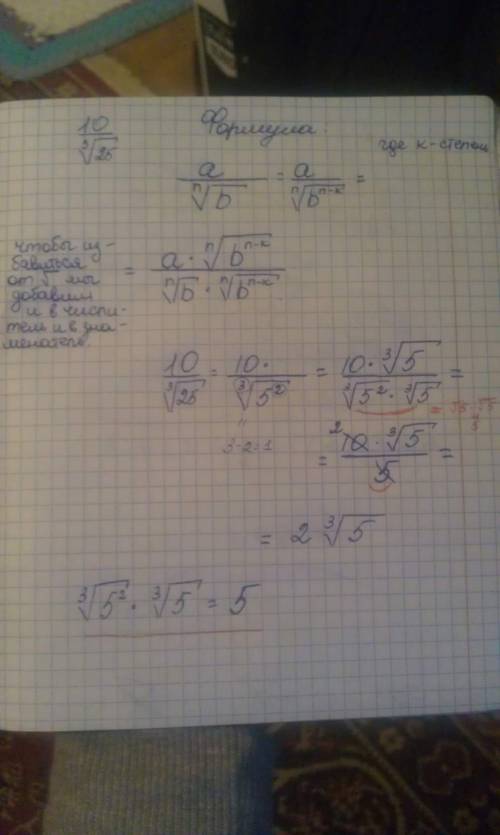 10/∛25 Формула.
где k-степень
a/ⁿ√b = a/ⁿ√(bⁿ⁻ᵏ) =
чтобы из-
бавиться
от √ мы
добавим
и в числи-
тель и в зна-
менатель.
= (a · ⁿ√(bⁿ⁻ᵏ))/(ⁿ√b · ⁿ√(bⁿ⁻ᵏ))
10/∛25 = 10·/∛(5²) = (10 · ∛5)/(∛(5²) · ∛5) =
3-2=1
= (²10 · ∛5)/5 =
= 2 ∛5
∛(5²) · ∛5 = 5